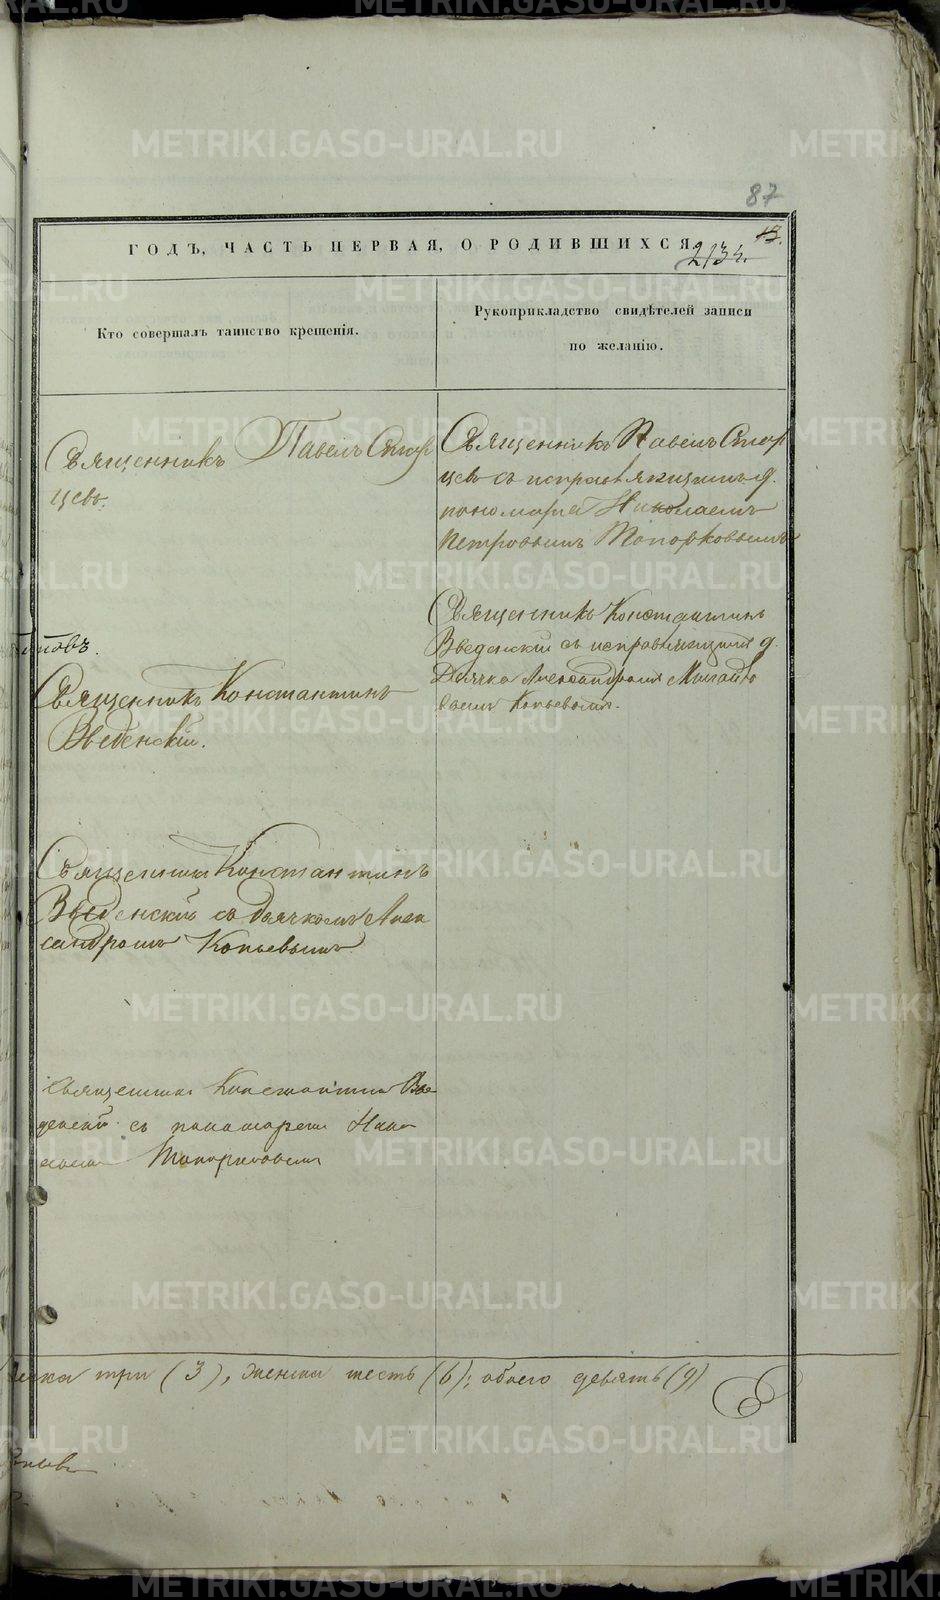 87
ГОДЪ, ЧАСТЬ ПЕРВАЯ, О РОДИВШИХСЯ.
13.
2134.
Кто совершалъ таинство крещенія.
Рукоприкладство свидѣтелей записи
по желанію.
Священникъ Павелъ Старцевъ
Священникъ Павелъ Стар
цевъ
цевъ съ исправляющимъ д.
пономаря Николаемъ
Петровымъ Топорковымъ
Священникъ Константинъ
Введенскій.
Священникъ Константинъ
Введенскій съ исправляющимъ д.
Дьячка Александромъ Михайло
вымъ Копьевымъ.
Священникъ Константинъ
Введенскій съ дьячкомъ Алек
сандромъ Копьевымъ
Священникъ Константинъ Вве
денскій съ пономаремъ Нико
лаемъ Топорковымъ
три (3), женска шесть (6); обоего девять (9)
METRIKI.GASO-URAL.RU